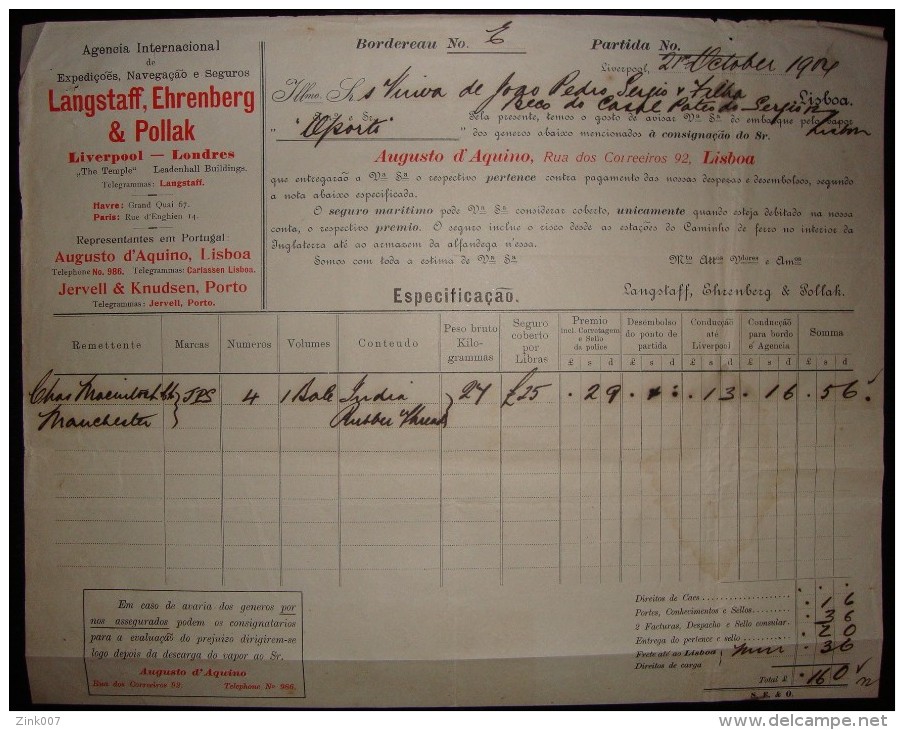 Agencia Internacional
de
Expedições, Navegação e Seguros
Langstaff, Ehrenberg
& Pollak
Liverpool — Londres
„The Temple" Leadenhall Buildings.
Telegrammas: Langstaff.
Havre: Grand Quai 67.
Paris: Rue d'Enghien 14.
Representantes em Portugal:
Augusto d'Aquino, Lisboa
Telephone No. 986. Telegrammas: Carlassen Lisboa.
Jervell & Knudsen, Porto
Telegrammas: Jervell, Porto.
Bordereau No. E
Partida No.
Liverpool, 21 October 1904
Illmo. Srs Viuva de Joao Pedro Sergio & Filha
Beco do Casal Pateo do Sergio 12 Lisboa.
Pela presente, temos o gosto de avisar Va Sa do embarque pelo vapor Lisbon
" "Oporto" " dos generos abaixo mencionados à consignação do Sr.
Augusto d'Aquino, Rua dos Correeiros 92, Lisboa
que entregarão a Va Sa o respectivo pertence contra pagamento das nossas despezas e desembolsos, segundo
a nota abaixo especificada.
O seguro maritimo pode Va Sa considerar coberto, unicamente quando esteja debitado na nossa
conta, o respectivo premio. O seguro inclue o risco desde as estações do Caminho de ferro no interior da
Inglaterra até ao armazem da alfandega n'essa.
Somos com toda a estima de Va Sa
Mto Attos Vdores e Amos
Especificação.
Langstaff, Ehrenberg & Pollak.
Remettente Marcas Numeros Volumes Contendo Peso bruto Kilogrammas Seguro coberto por Libras Premio incl. Corretagem e Sello da police Desembolso do ponto de partida Conducção até Liverpool Conducção para bordo e Agencia Somma
£ s d £ s d £ s d £ s d £ s d
Chas Macintosh & Co JPS 4 1 Bale India 27 £25 . 2 9 . 1 3 . 1 6 . 5 6
Manchester Rubber Thread
Em caso de avaria dos generos por
nos assegurados podem os consignatarios
para a evaluação do prejuizo dirigirem-se
logo depois da descarga do vapor ao Sr.
Augusto d'Aquino
Rua dos Correeiros 92. Telephone No 986.
Direitos de Caes . 1 6
Portes, Conhecimentos e Sellos . 3 6
2 Facturas, Despacho e Sello consular . 2 0
Entrega do pertence e sello
Frete até ao Lisboa . 3 6
Direitos de carga
Total £ . 16 0
S. E. & O.
Zink007
delcampe.net